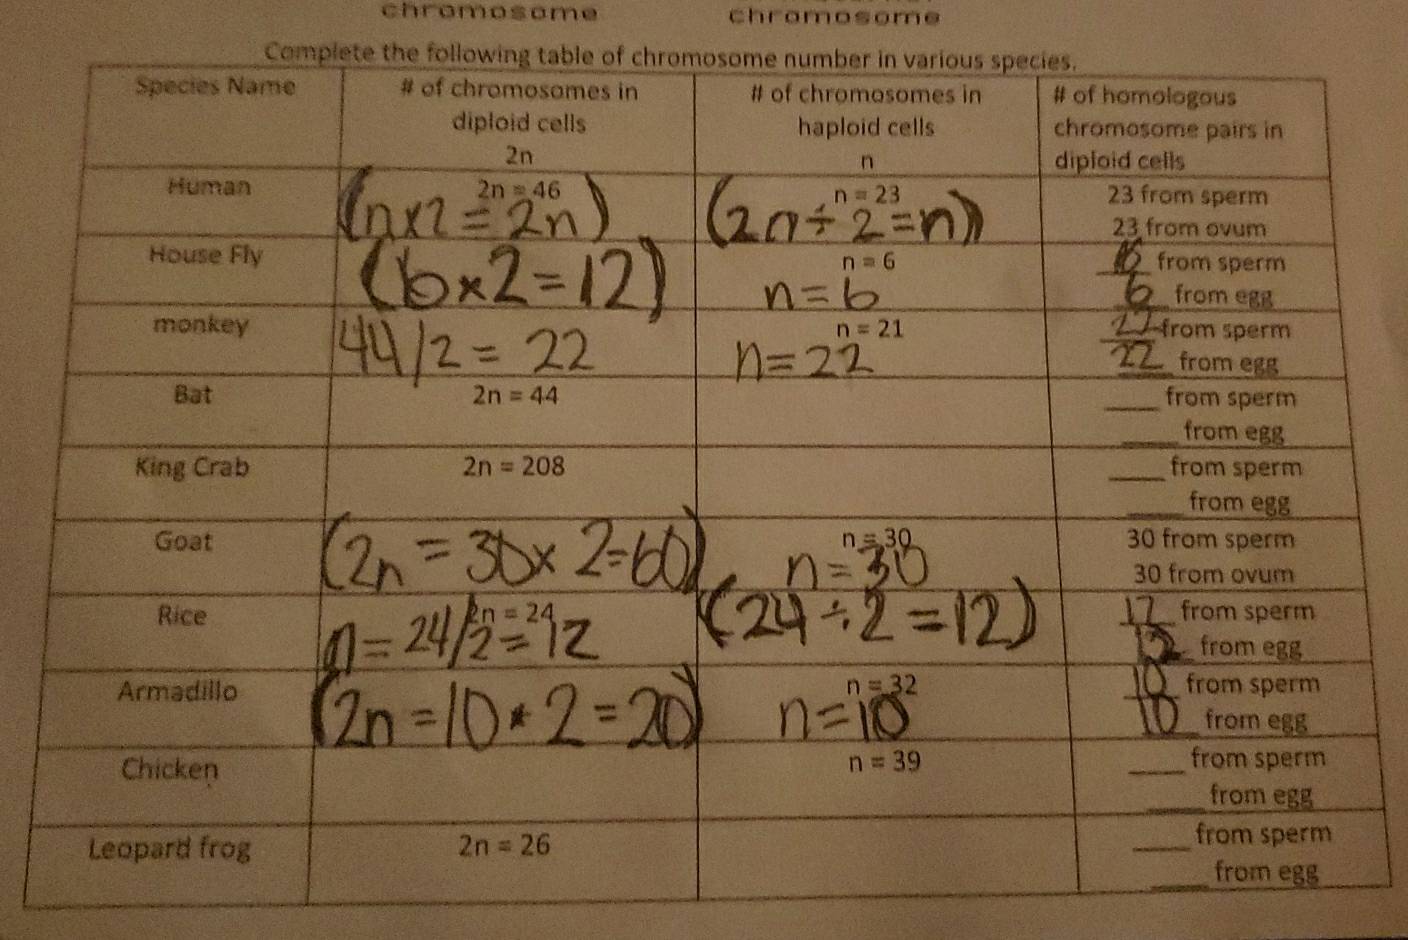 chromosome chromosome
Complete the following table of chromosome number in various species.
Species Name # of chromosomes in # of chromosomes in # of homologous
diploid cells haploid cells chromosome pairs in
2n n diploid cells
Human 2n = 46 n = 23 23 from sperm
(n×2=2n) (2n÷2=n) 23 from ovum
House Fly n = 6 6 from sperm
(6×2=12) n=6 6 from egg
monkey n = 21 22 from sperm
44/2 = 22 n=22 22 from egg
Bat 2n = 44 ___ from sperm
___ from egg
King Crab 2n = 208 ___ from sperm
___ from egg
Goat n = 30 30 from sperm
(2n = 30×2=60) n=30 30 from ovum
Rice 2n = 24 (24÷2=12) 12 from sperm
n=24/2=12 12 from egg
Armadillo n = 32 10 from sperm
(2n=10*2=20) n=10 10 from egg
Chicken n = 39 ___ from sperm
___ from egg
Leopard frog 2n = 26 ___ from sperm
___ from egg